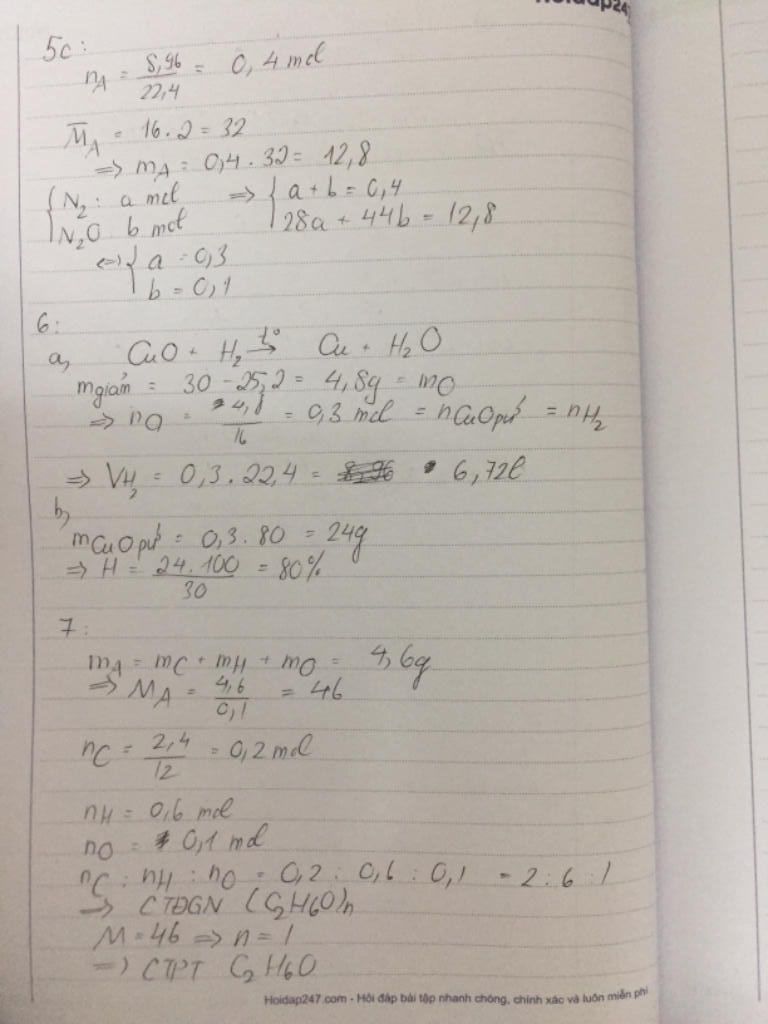 Hoidap247
5c:
nA = 8,96/22,4 = 0,4 mol
M̅A = 16.2 = 32
=> mA = 0,4.32 = 12,8
{N2: a mol => {a + b = 0,4
{N2O b mol {28a + 44b = 12,8
<=> {a = 0,3
{b = 0,1
6:
a, CuO + H2 t°→ Cu + H2O
mgiảm = 30 - 25,2 = 4,8g = mO
=> nO = 4,8/16 = 0,3 mol = nCuO pứ = nH2
=> VH2 = 0,3.22,4 = 6,72l
b,
mCuO pứ = 0,3.80 = 24g
=> H = 24.100/30 = 80%
7:
mA = mC + mH + mO = 4,6g
=> MA = 4,6/0,1 = 46
nC = 2,4/12 = 0,2 mol
nH = 0,6 mol
nO = 0,1 mol
nC : nH : nO = 0,2 : 0,6 : 0,1 = 2:6:1
=> CTĐGN (C2H6O)n
M = 46 => n = 1
=> CTPT C2H6O
Hoidap247.com - Hỏi đáp bài tập nhanh chóng, chính xác và luôn miễn phí